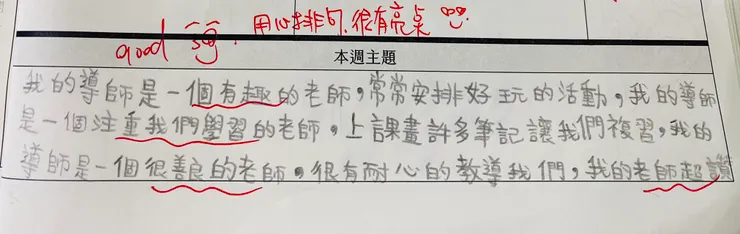 用心排句,很有亮點
good
本週主題
我的導師是一個有趣的老師,常常安排好玩的活動,我的導師
是一個注重我們學習的老師,上課畫許多筆記讓我們複習,我的
導師是一個很善良的老師。很有耐心的教導我們,我的老師超讚